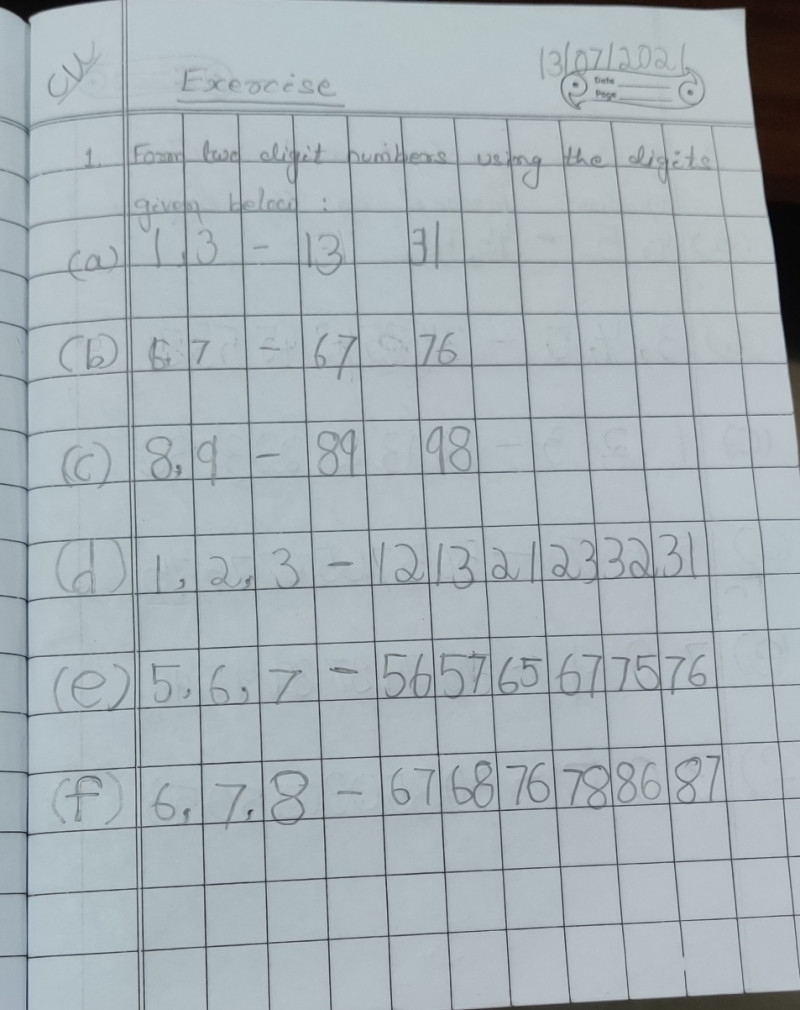 CW
13/07/2021
Exercise
Date
Page
1. Form two digit numbers using the digits
given below :
(a) 1,3 - 13 31
(b) 6,7 - 67 76
(c) 8,9 - 89 98
(d) 1,2,3 - 12 13 21 23 32 31
(e) 5,6,7 - 56 57 65 67 75 76
(f) 6,7,8 - 67 68 76 78 86 87